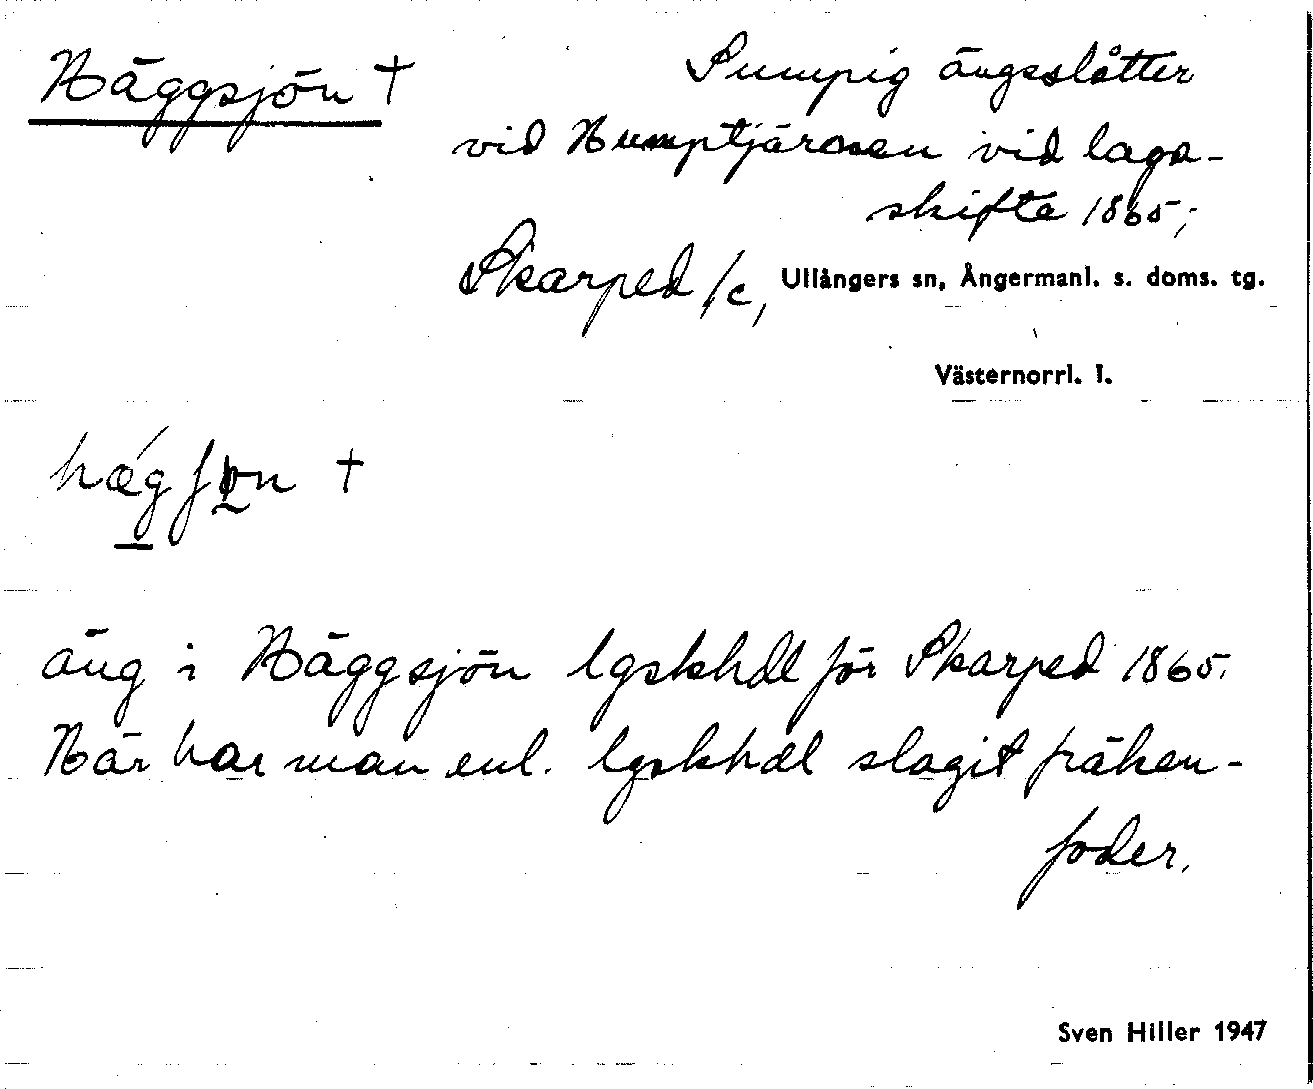 Häggsjön †
Sumpig ängsslåtter
vid Humptjärnen vid laga-
skifte 1865;
Skarped /c, Ullångers sn, Ångermanl. s. doms. tg.
Västernorrl. l.
hǽgʃøn †
äng i Häggsjön lgskhdl för Skarped 1865.
Här har man enl. lgskhdl slagit fräken-
foder.
Sven Hiller 1947